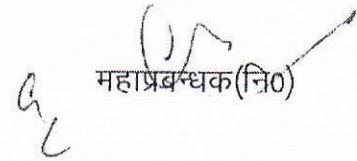 महाप्रबन्धक(नि0)